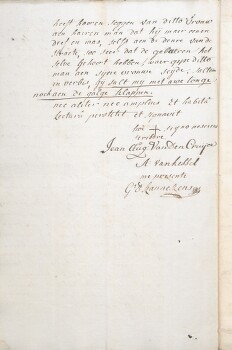 heeft hooren seggen van ditto Vrouw
aen haeren man dat hij maer eenen
dief en was, selfs aen de deure van de
straete, soo seer dat de gebueren het
selve gehoort hebben, waer op de ditto
man aen syne vrouwe seyde,
in verbis, gy sult mij met uwe tonge
noch aen de galge klappen.
nec aliter nec amplius et habita
lectura persistit, et signavit
Jean Aug. Van Den Cruyce
A Van Kessel
me presente